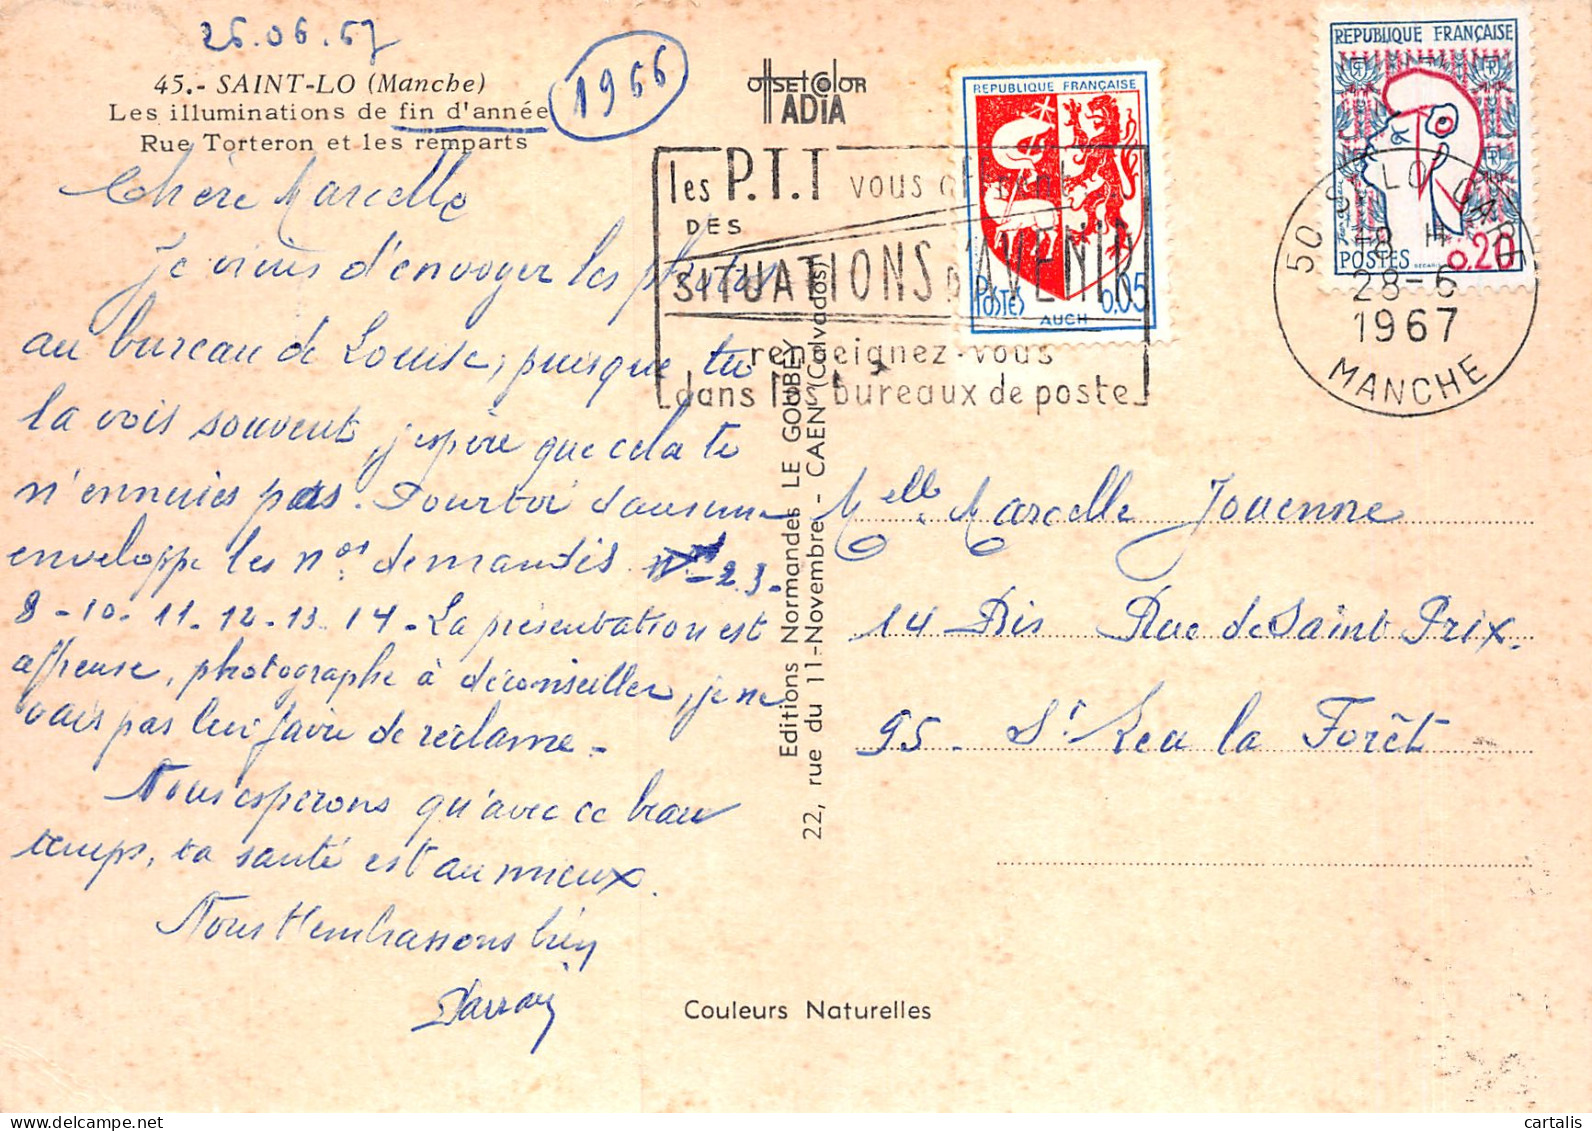 26.06.67
45.- SAINT-LO (Manche)
Les illuminations de fin d'année
Rue Torteron et les remparts
1966
OffSET COlOR
ADIA
Chère Marcelle
Je viens d'envoyer les photos
au bureau de Louise, puisque tu
la vois souvent, j'espère que cela te
n'ennuies pas. Pour toi dans une
enveloppe les nos. demandés 23.
8-10-11.12-13.14-La présentation est
affreuse, photographe à déconseiller, je ne
vais pas lui faire de réclame-
Nous esperons qu'avec ce beau
temps, ta santé est au mieux.
Nous t'embrassons bien
les P.T.T vous offrent
DES
SITUATIONS D'AVENIR
renseignez-vous
dans les bureaux de poste
REPUBLIQUE FRANÇAISE
POSTES 0,05
AUCH
REPUBLIQUE FRANÇAISE
POSTES 0,20
50 ST LO GARE
18 H
28-6
1967
MANCHE
Editions Normandes LE GOUBEY
22, rue du 11-Novembre - CAEN (Calvados)
Melle Marcelle Jouenne
14 Bis Rue de Saint Prix.
95- St Leu la Forêt
Couleurs Naturelles
cartalis
delcampe.net